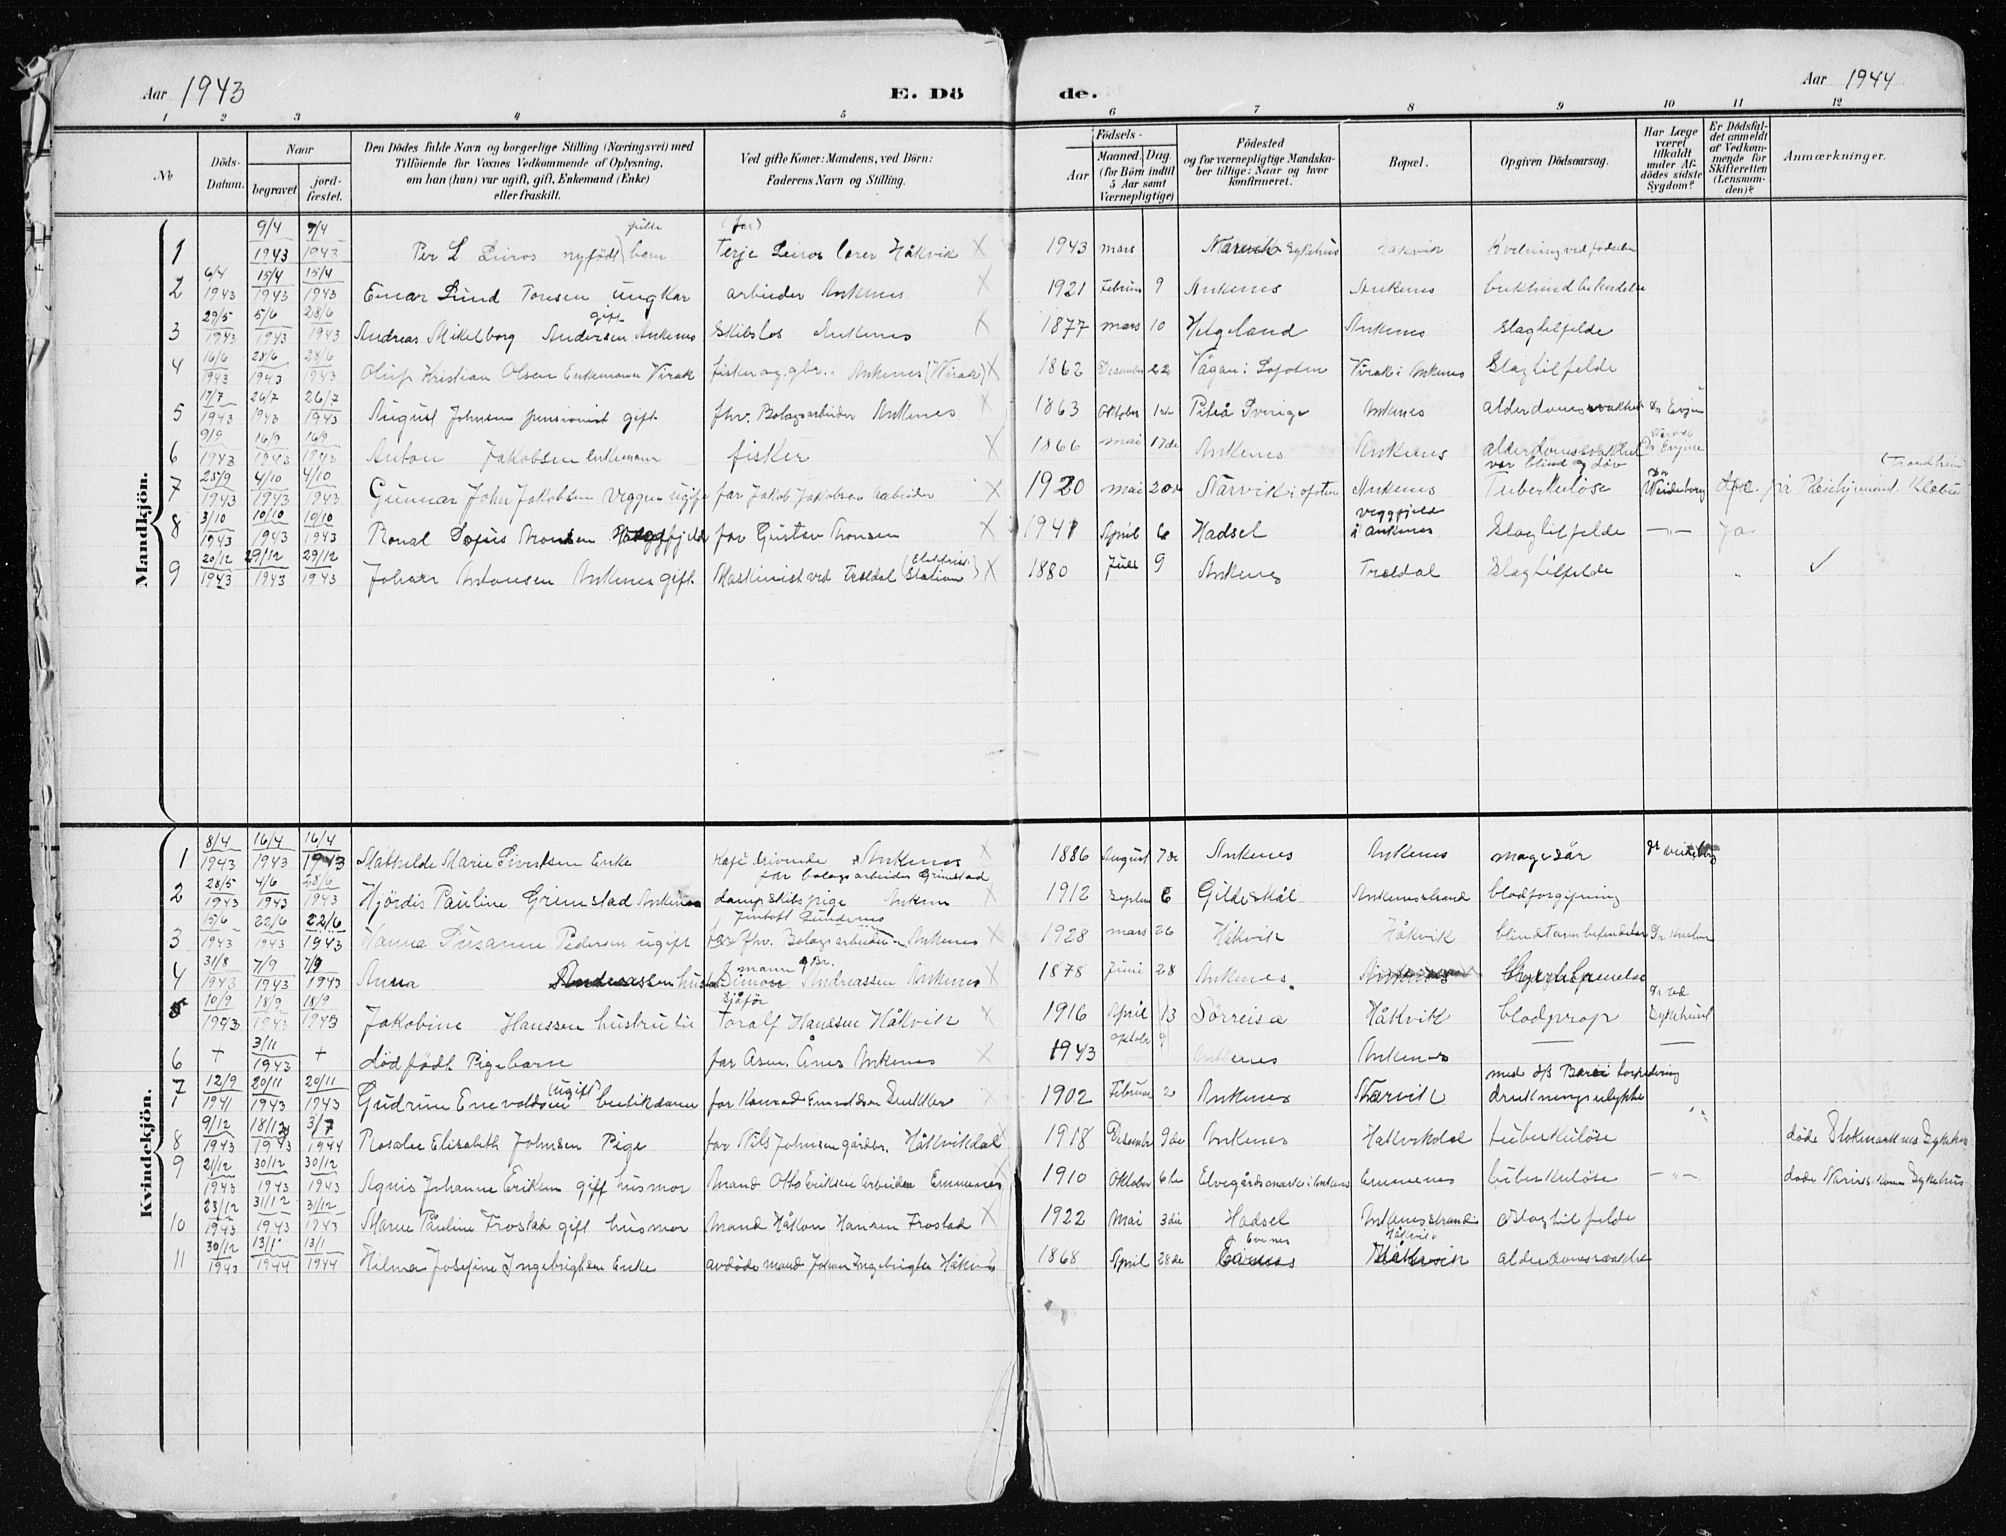 Aar 1943 E. Dö de. Aar 1944
1 2 3 4 5 6 7 8 9 10 11 12
No
Döds-Datum.
Naar
begravet.
jord-fæstet.
Den Dödes fulde Navn og borgerlige Stilling (Næringsvei) med
Tilföiende for Voxnes Vedkommende af Oplysning,
om han (hun) var ugift, gift, Enkemand (Enke)
eller fraskilt.
Ved gifte Koner: Mandens, ved Börn:
Faderens Navn og Stilling.
Födsels-
Aar
Maaned. Dag.
(for Börn indtil
5 Aar samt
Værnepligtige)
Födested
og for værnepligtige Mandska-
ber tillige: Naar og hvor
konfirmeret.
Bopæl.
Opgiven Dödsaarsag.
Har Læge
været
tilkaldt
under Af-
dödes sidste
Sygdom?
Er Dödsfal-
det anmeldt
af Vedkom-
mende for
Skifteretten
(Lensman-
den)?
Anmærkninger.
Mandkjön.
1 9/4 1943 9/4 1943 Per L Leiros nyfødt gutte barn (far) Terje Leiros lærer Håkvik X 1943 mars Narvik Sykehus Håkvik Kvelning ved fødselen
2 6/4 1943 15/4 1943 15/4 1943 Einar Lund Tonsen ungkar arbeider Ankenes X 1921 Februar 9 Ankenes Ankenes
3 29/5 1943 5/6 1943 28/6 1943 Andreas Mikelborg Andersen gift Ankenes Skibslos Ankenes X 1877 mars 10 Helgeland Ankenes Slagtilfelde
4 16/6 1943 28/6 1943 28/6 1943 Oluf Kristian Olsen Enkemann Virak fisker og gbr. Ankenes (Virak) X 1862 Desember 22 Vågan i Lofoten Virak i Ankenes Slagtilfelde
5 17/7 1943 26/7 1943 26/7 1943 August Johnsen pensionist gift fhv. Bolagsarbeider Ankenes X 1863 Oktober Piteå Sverige Ankenes alderdomssvakhet Dr Evjen
6 9/9 1943 16/9 1943 16/9 1943 Anton Jakobsen enkemann fisker X 1866 mai 17de Ankenes Ankenes alderdomssvakhet var blind og døv Dr Evjen
7 25/9 1943 4/10 1943 4/10 1943 Gunnar John Jakobsen Veggen ugift far Jakob Jakobsen arbeider X 1920 mai 20de Narvik i Ofoten Ankenes Tuberkuløse Dr Weideborg på Klæbu (Trondheim)
8 3/10 1943 10/10 1943 10/10 1943 Ronal Sofus Monsen far Gustav Monsen X 1941 April 6 Hadsel Veggfjeld i Ankenes Slagtilfelde -"- Ja
9 20/12 1943 29/12 1943 29/12 1943 Johan Antonsen Ankenes gift Maskinist ved Trældal (Elektrisk Station) X 1880 Juli 9 Ankenes Trældal Slagtilfelde " ✓
Kvindekjön.
1 8/4 1943 16/4 1943 16/4 1943 Mathilde Marie Sivertsen Enke Kafe drivende Ankenes X 1886 August 7de Ankenes Ankenes magesår Dr Weideborg
2 28/5 1943 4/6 1943 28/6 1943 Hjördis Pauline Grimstad Ankenes far bolagsarbeider Grimstad dampskibspige Ankenes X 1912 Septem 6 Gildeskål Ankenesstrand blodforgiftning
3 15/6 1943 22/6 1943 22/6 1943 Hanna Susanne Pedersen ugift far fhv. Bolagsarbeider Ankenes X 1928 mars 26 Håkvik Håkvik blindtarmbetendelse
4 31/8 1943 7/9 1943 7/9 1943 Anna Andreassen mann gbr. Simon Andreassen Ankenes X 1878 Juni 28 Ankenes
5 10/9 1943 18/9 1943 18/9 1943 Jakobine Hanssen hustru til sjåfør Toralf Hanssen Håkvik X 1916 April 13 Sörreisa Håkvik blodprop Sykehuset
6 + 3/11 1943 + dödfödt Pigebarn far Asm. Ånes Ankenes X 1943 oktober 9 Ankenes Ankenes — —
7 12/9 1941 20/11 1943 20/11 1943 Gudrun Enevoldsen (ugift) butikdame far Konrad Enevoldsen X 1902 Februar 2 Ankenes Narvik med d/s Barøi torpedering drukningsulykke
8 9/12 1943 18/12 1943 3/7 1944 Rosalie Elisabeth Johnsen Pige far Nils Johnsen gårdbr. Håkvikdal X 1918 Desember 9de Ankenes Håkvikdal tuberkuløse døde Stokmarknes Sykehus
9 21/12 1943 30/12 1943 30/12 1943 Agnis Johanne Eriksen gift husmor Mand Otto Eriksen Arbeider Emmenes X 1910 Oktober 6te Elvegårdsmark i Ankenes Emmenes tuberkuløse -"- døde Narvik Komm Sykehus
10 23/12 1943 31/12 1943 31/12 1943 Marie Påline Frostad gift husmor Mand Håkon Hansen Frostad X 1922 Mai 3die Hadsel Ankenesstrand Slagtilfelde
11 30/12 1943 13/1 1944 13/1 1944 Hilma Josefine Ingebrigtsen Enke avdøde mand Johan Ingebrigtsen Håkvik 1868 April 28de Evenes Håkvik alderdomssvakhet